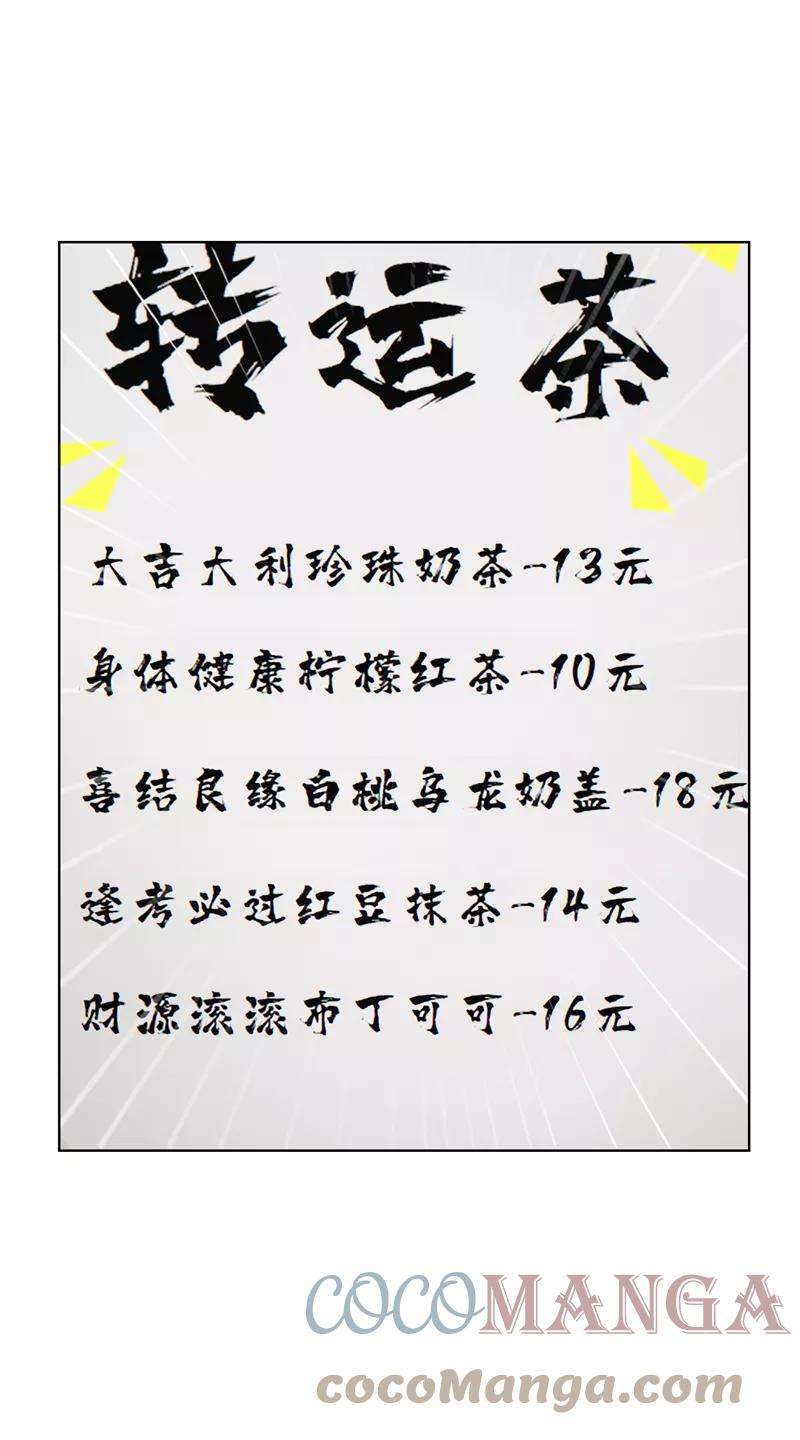 转运茶
大吉大利珍珠奶茶-13元
身体健康柠檬红茶-10元
喜结良缘白桃乌龙奶盖-18元
逢考必过红豆抹茶-14元
财源滚滚布丁可可-16元
COCOMANGA
cocoManga.com